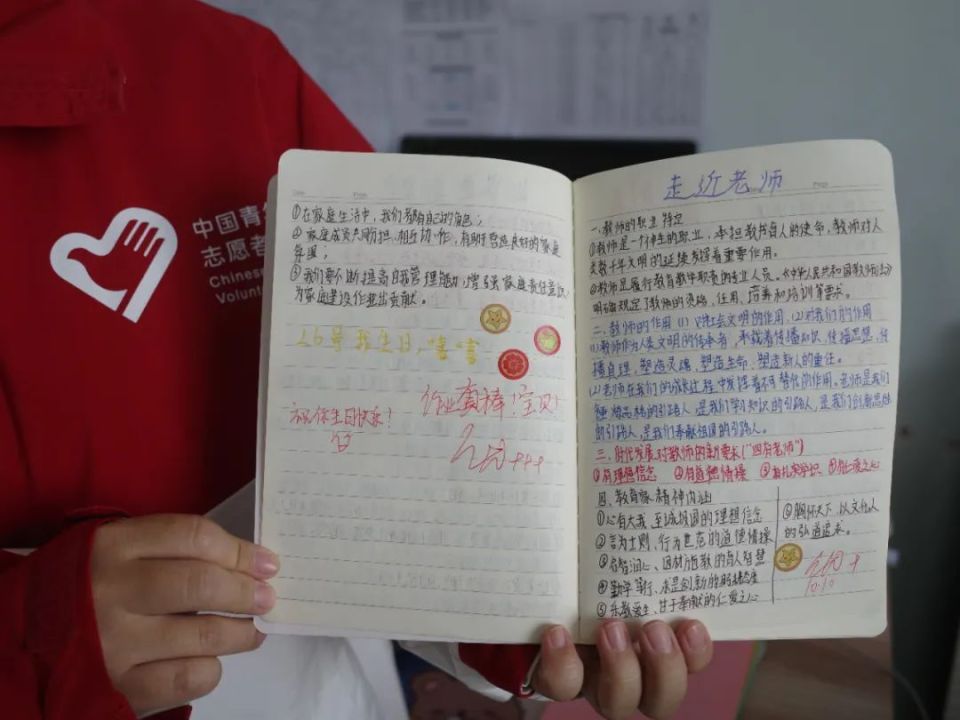 中国青
志愿者
Chinese
Volunt
①在家庭生活中，我们都有自己的角色；
②家庭成员共同分担，相互协作，有助于营造良好的家庭
氛围；
③我们要不断提高自我管理能力，增强家庭责任意识，
为家庭建设作出贡献。
26号我生日，嘻嘻
作业真棒！宝贝！
祝你生日快乐！
走近老师
一、教师的职业特定
①教师是一个神圣的职业，承担教书育人的使命，教师对人
类数千年文明的延续发挥着重要作用。
②教师是履行教育教学职责的专业人员。《中华人民共和国教师法》
明确规定了教师的资格、任用、培养和培训等要求。
二、教师的作用 (1)对社会文明的作用，(2)对我们的作用
(1)教师作为人类文明的传承者，承载着传播知识、传播思想、传
播真理，塑造灵魂、塑造生命、塑造新人的重任。
(2)老师在我们的成长过程中发挥着不可替代的作用。老师是我们
锤炼品格的引路人，是我们学习知识的引路人，是我们创新思维
的引路人，是我们奉献祖国的引路人。
三、时代发展对教师的新要求("四有老师")
①有理想信念 ②有道德情操 ③有扎实学识 ④有仁爱之心
四、教育家精神内涵
①心有大我、至诚报国的理想信念
②言为士则、行为世范的道德情操
③启智润心、因材施教的育人智慧
④勤学笃行、求是创新的躬耕态度
⑤乐教爱生、甘于奉献的仁爱之心
⑥胸怀天下、以文化人
的弘道追求。
10.10